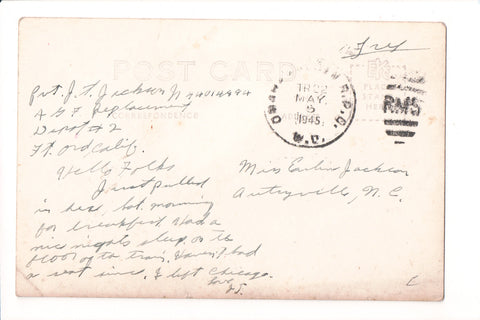 Free
POST CARD
Pvt. J. T. Jackson Jr 34014894
AGF Replacement
Depot #2
CORRESPONDENCE
Ft. Ord Calif.
TR 22
MAY
5
1945
R.P.O.
W.D.
RMS
Hello Folks
Just pulled
in here Sat. morning
for breakfast. Had a
nice nights sleep on the
floor of the train. Haven't had
a seat since I left Chicago.
Love
J.T.
Miss Jackson
Autryville, N.C.